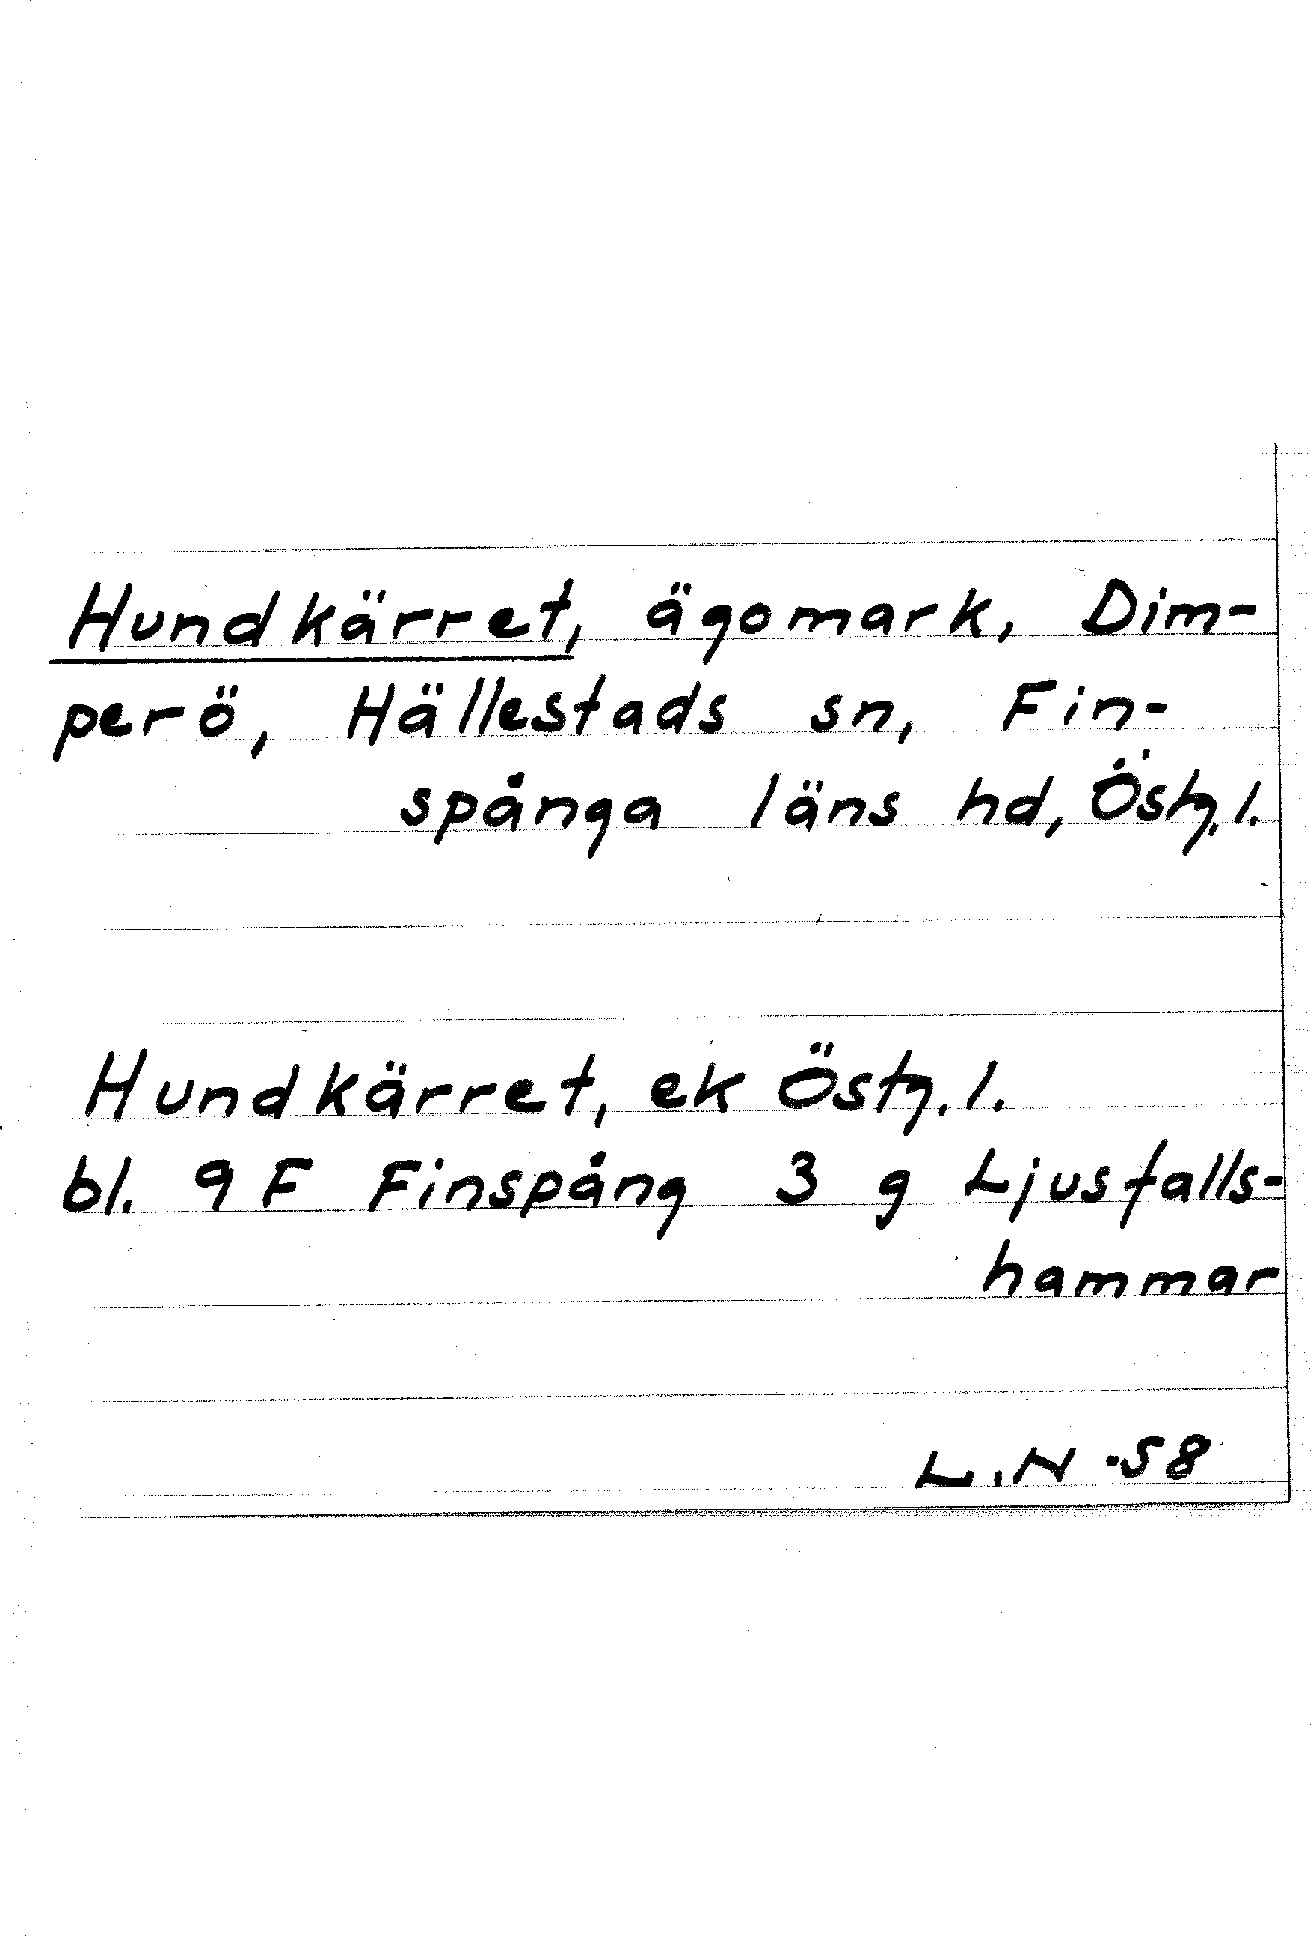 Hundkärret, ägomark, Dim-
perö, Hällestads sn, Fin-
spånga läns hd, Östg.l.
Hundkärret, ek Östg.l.
bl. 9 F Finspång 3 g Ljusfalls-
hammar
L.N -58